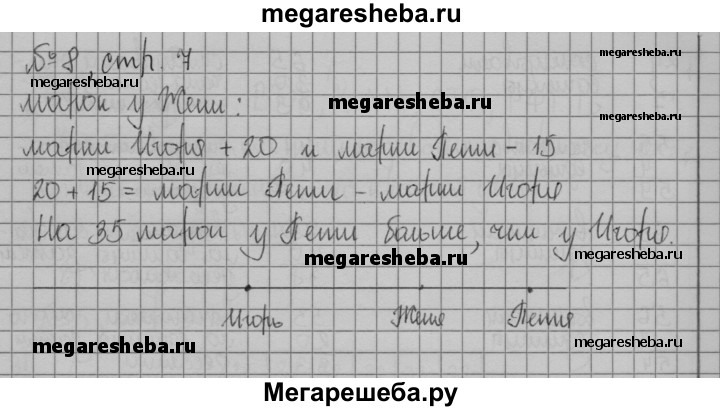 megaresheba.ru
№ 8, стр. 7
megaresheba.ru
megaresheba.ru
марок у Жени:
megaresheba.ru
megaresheba.ru
марки Игоря + 20 и марки Пети - 15
megaresheba.ru
20 + 15 = марки Пети - марки Игоря
На 35 марок у Пети больше, чем у Игоря.
megaresheba.ru
megaresheba.ru
Игорь Женя Петя
megaresheba.ru
megaresheba.ru
Мегарешеба.ру